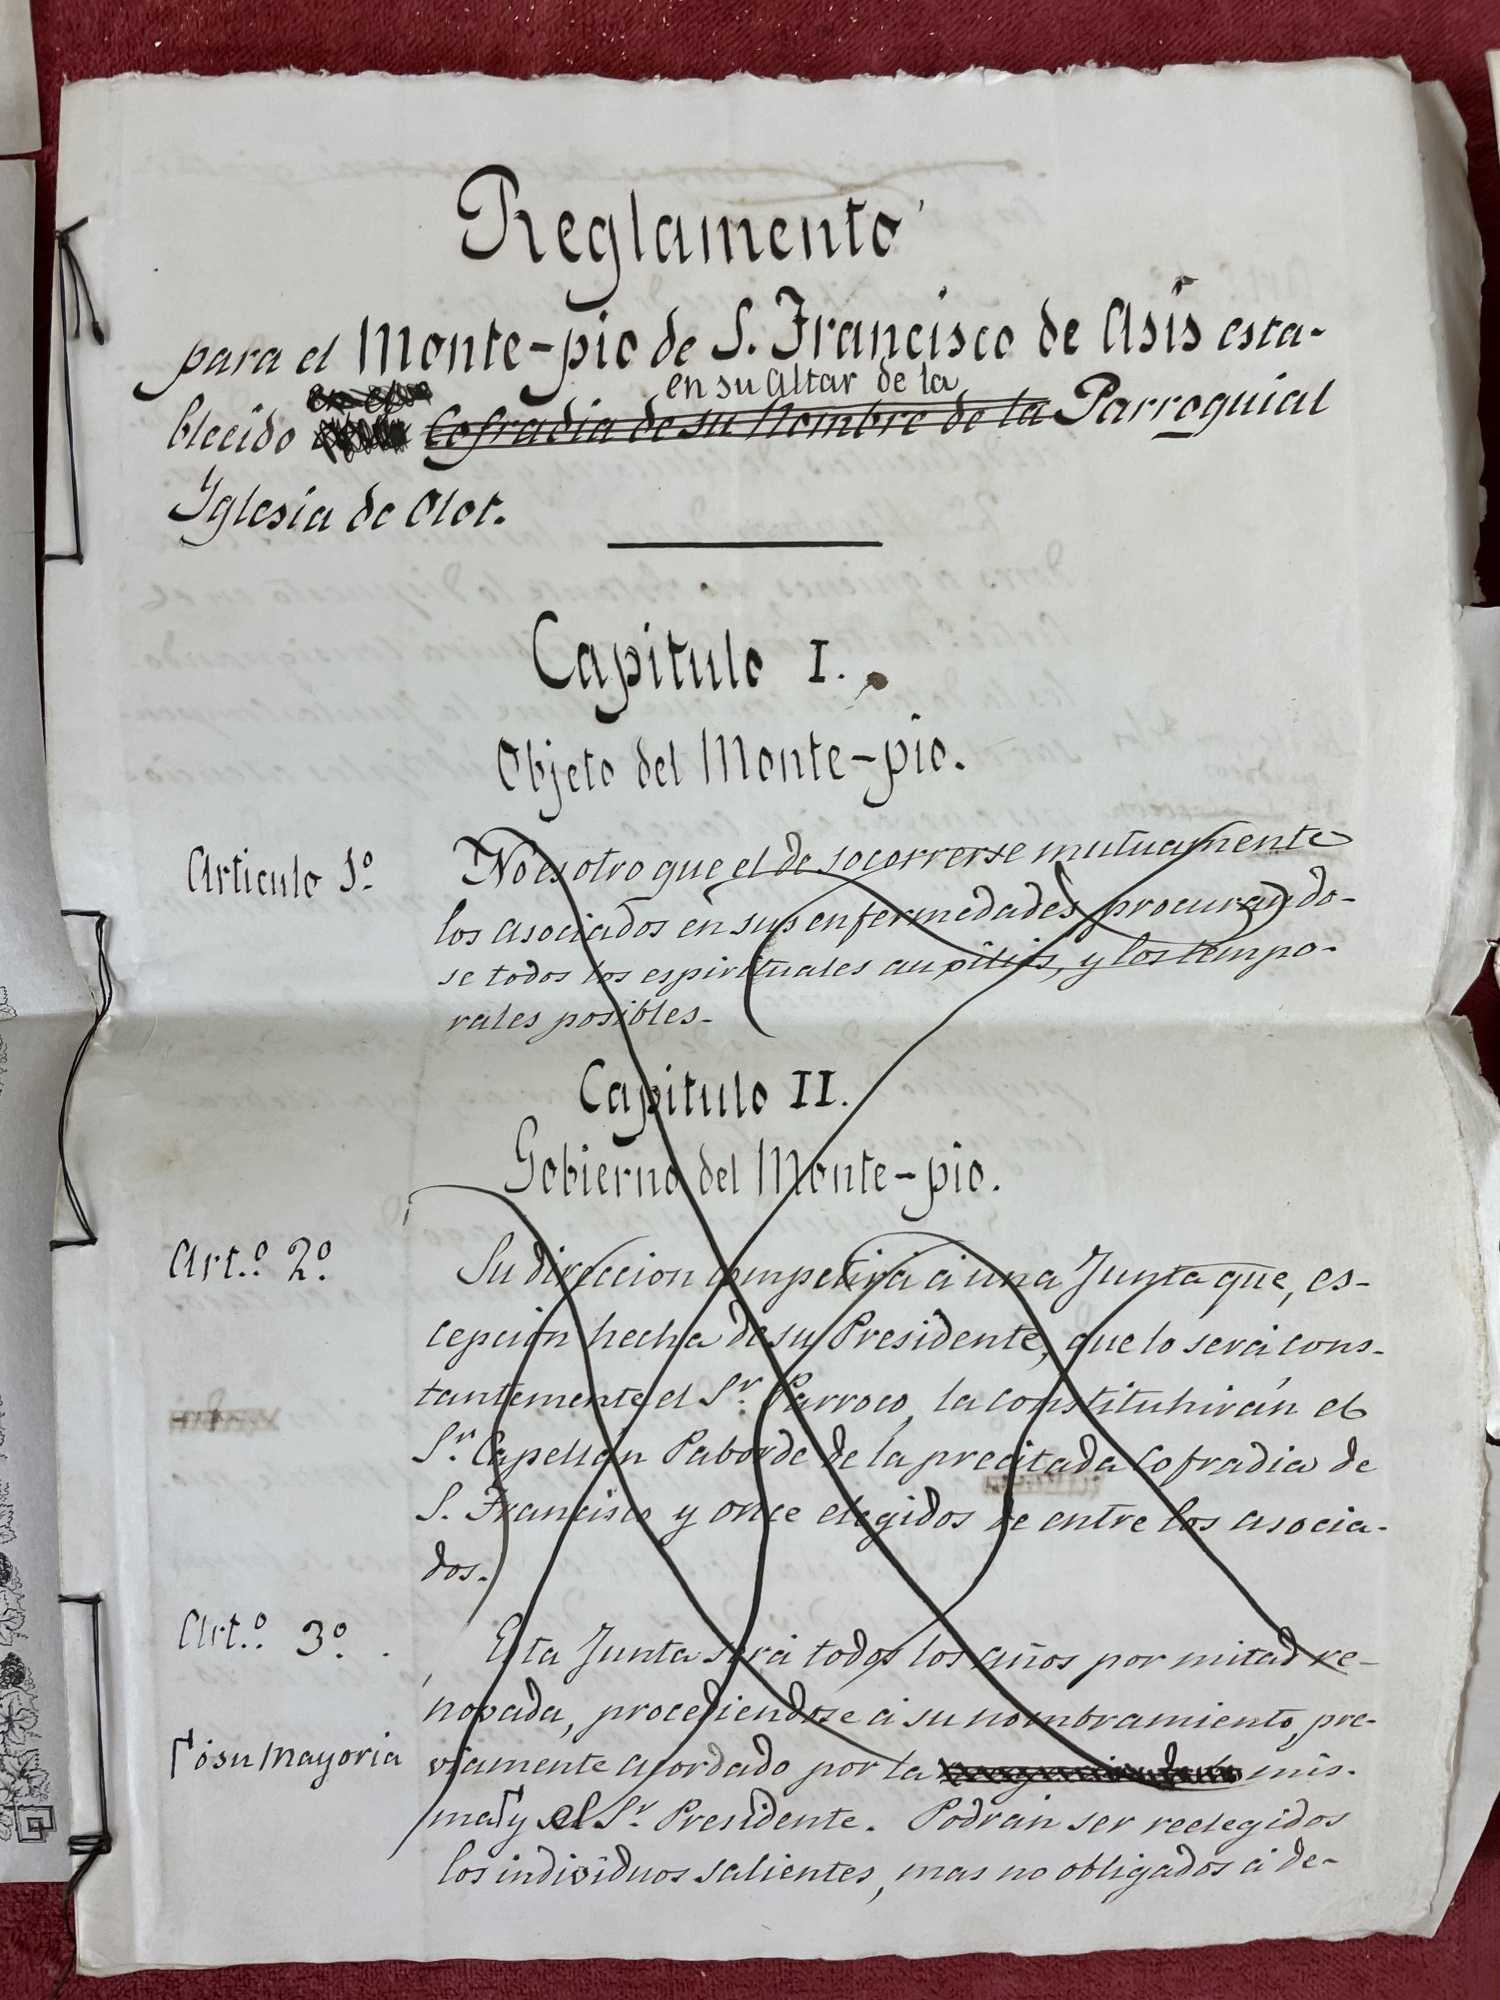 Reglamento
para el Monte-pio de S. Francisco de Asis esta-
en su Altar de la
blecido Cofradia de su Nombre de la Parroquial
Iglesia de Olot.
Capitulo I.
Objeto del Monte-pio.
Articulo 1º.
No es otro que el de socorrerse mutuamente
los asociados en sus enfermedades procurando-
se todos los espirituales aupilios, y los tempo-
rales posibles.
Capitulo II.
Gobierno del Monte-pio.
Art.º 2º.
Su direccion competirá á una Junta que, es-
cepción hecha de su Presidente, que lo será cons-
tantemente el Sr. Parroco, la constituhirán el
Sr. Capellán Paborde de la precitada Cofradia de
S. Francisco y once elegidos de entre los asocia-
dos.
Art.º 3º.
Esta Junta será todos los años por mitad re-
novada, procediendose á su nombramiento, pre-
ó su mayoria
viamente acordado por la mis-
ma y el Sr. Presidente. Podrán ser reelegidos
los individuos salientes, mas no obligados á de-